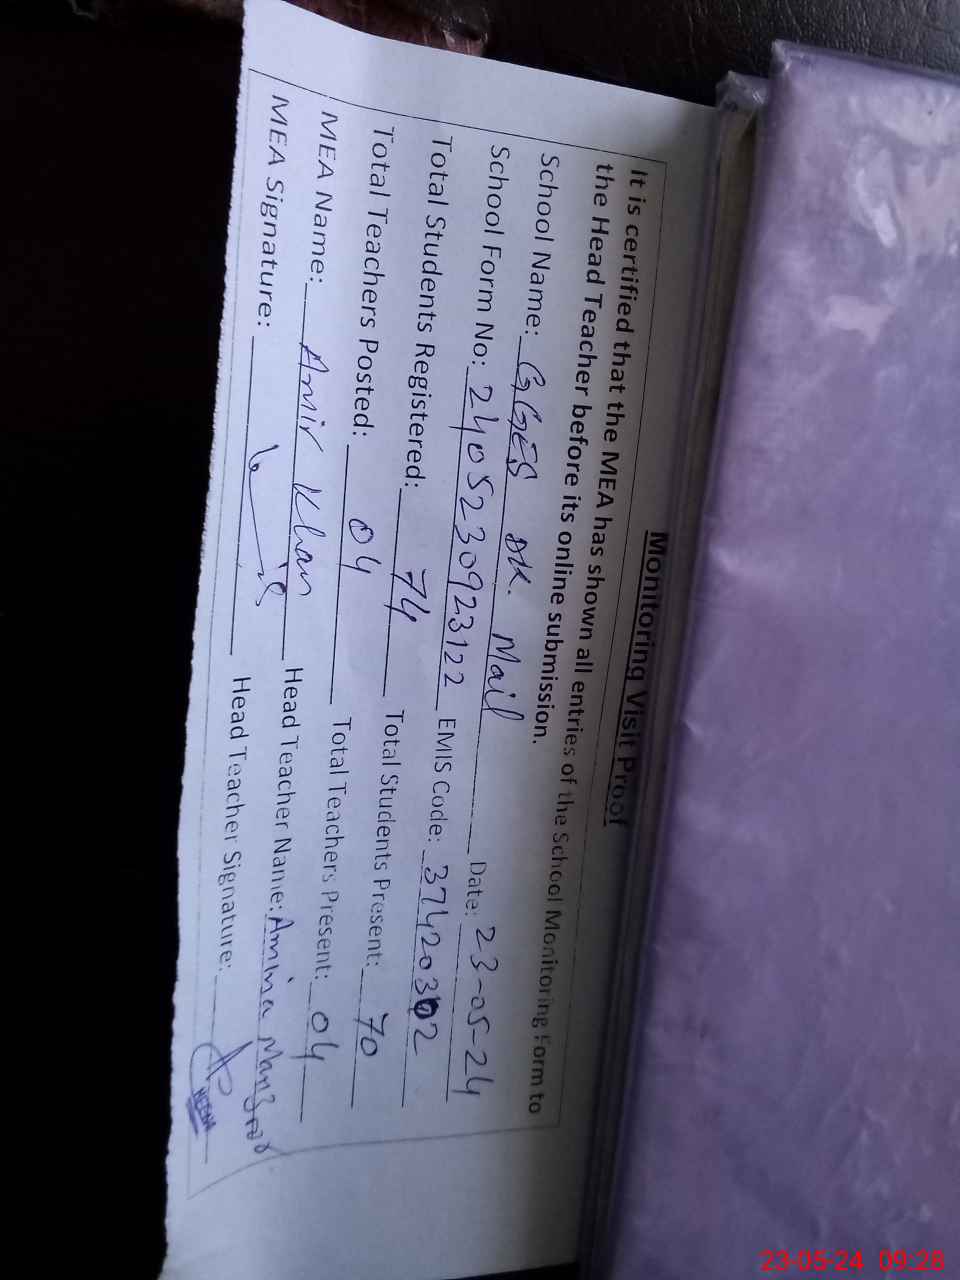 Monitoring Visit Proof
It is certified that the MEA has shown all entries of the School Monitoring Form to
the Head Teacher before its online submission.
School Name: GGES DK. Mail Date: 23-05-24
School Form No: 2405230923122 EMIS Code: 37420302
Total Students Registered: 74 Total Students Present: 70
Total Teachers Posted: 04 Total Teachers Present: 04
MEA Name: Amir Khan Head Teacher Name: Amina Manzoor
MEA Signature: Head Teacher Signature:
23-05-24 09:28